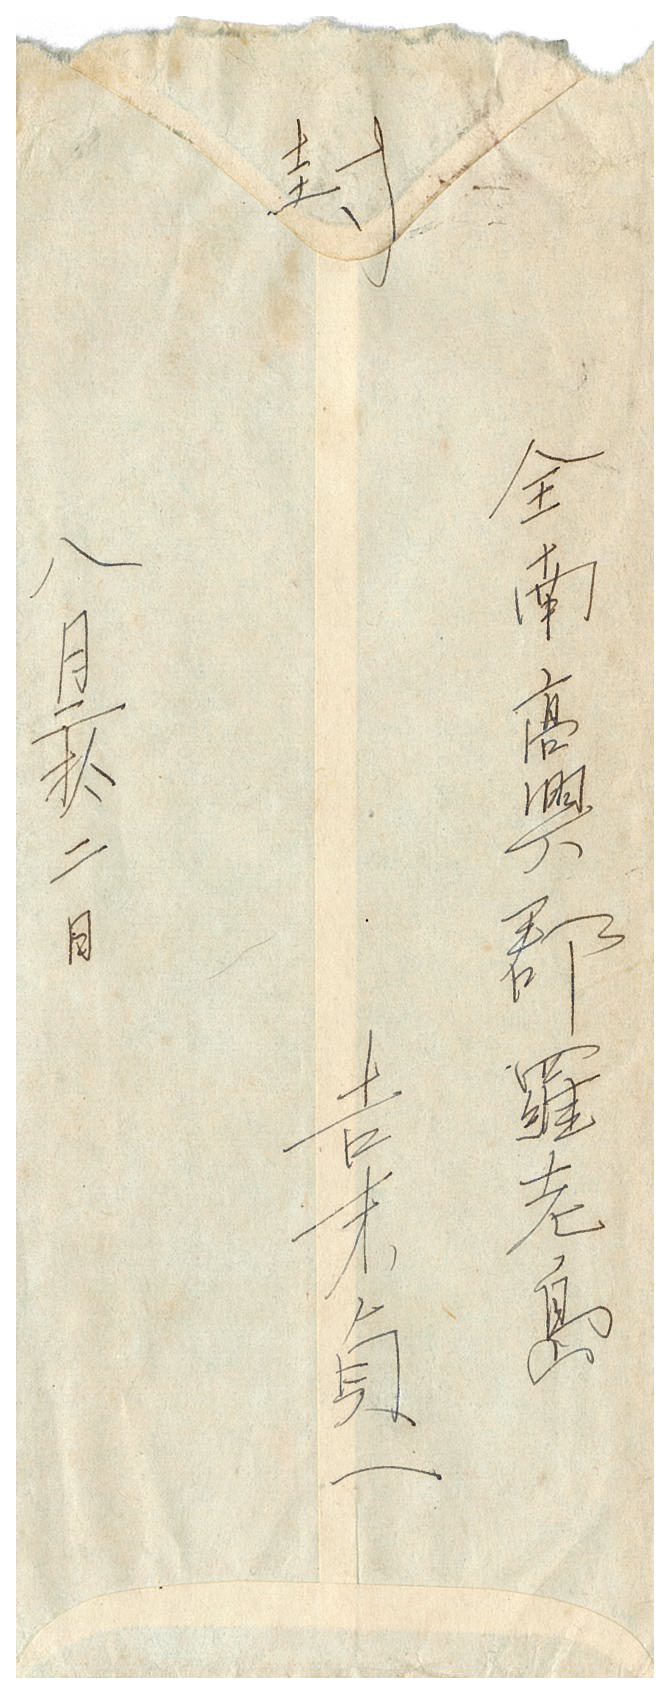 封
全南高興郡羅老島
吉末貞一
八月二拾二日